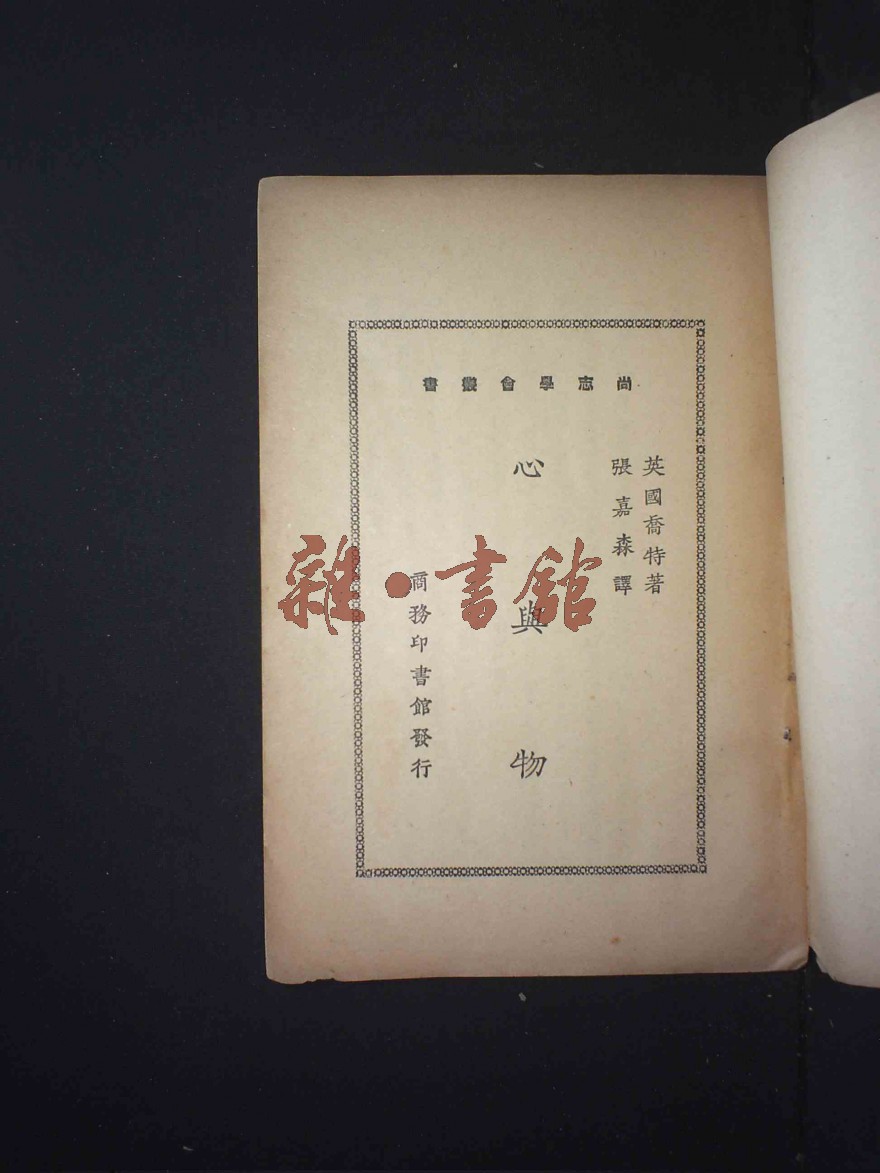 尚志學會叢書
英國喬特著
張嘉森譯
心與物
商務印書館發行
雜·書館